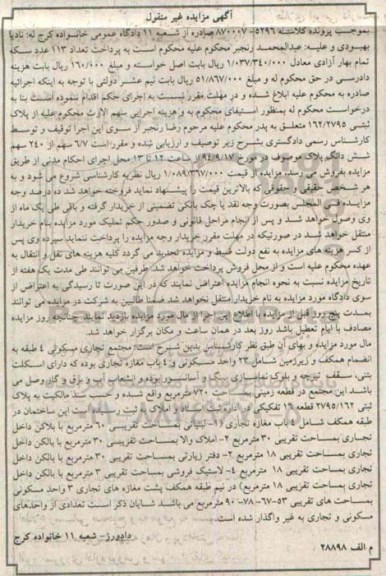 آگهی مزایده غیر منقول
بموجب پرونده کلاسه ۵۲۹۶-۸۷۰۰۰۷ صادره از شعبه ۱۱ دادگاه عمومی خانواده کرج له: نادیا
بهبودی و علیه: عبدالمحمد رنجبر محکوم علیه محکوم است به پرداخت تعداد ۱۱۳ عدد سکه
تمام بهار آزادی معادل ۱/۰۳۷/۳۴۰/۰۰۰ ریال بابت اصل خواسته و مبلغ ۱۶۰/۰۰۰ ریال بابت هزینه
دادرسی در حق محکوم له و مبلغ ۵۱/۸۶۷/۰۰۰ ریال بابت نیم عشر دولتی با توجه به اینکه اجرائیه
صادره به محکوم علیه ابلاغ شده و در مهلت مقرر نسبت به اجرای حکم اقدام ننموده است بنا به
درخواست محکوم له بمنظور استیفای محکوم به و هزینه اجرایی سهم الارث محکوم علیه از پلاک
ثبتی ۱۶۲/۲۷۹۵ متعلق به پدر محکوم علیه مرحوم رضا رنجبر از سوی این اجرا توقیف و توسط
کارشناس رسمی دادگستری بشرح زیر توصیف و ارزیابی شده و مقرر است ۶/۷ سهم از ۲۴۰ سهم
شش دانگ پلاک موصوف در مورخ ۹۴/۹/۱۷ از ساعت ۱۲ تا ۱۳ محل اجرای احکام مدنی از طریق
مزایده بفروش می رسد، مزایده از قیمت ۱/۰۸۹/۳۶۷/۰۰۰ ریال نظریه کارشناسی شروع می شود و به
هر شخص حقیقی و حقوقی که بالاترین قیمت را پیشنهاد نماید فروخته خواهد شد. ده درصد وجه
مزایده فی المجلس بصورت وجه نقد یا چک بانکی تضمینی از خریدار گرفته و باقی طی یک ماه از
وی وصول خواهد شد و پس از انجام مراحل قانونی و صدور حکم تملیک مورد مزایده بنام خریدار
منتقل خواهد شد در صورتیکه در مهلت مقرر خریدار وجه مزایده را پرداخت ننماید سپرده وی پس
از کسر هزینه های مزایده به نفع دولت ضبط و مزایده تجدید می گردد کلیه هزینه های نقل و انتقال به
عهده محکوم علیه است و از محل فروش پرداخت خواهد شد. طرفین می توانند طی مدت یک هفته از
تاریخ مزایده نسبت به نحوه انجام مزایده اعتراض نمایند که در این صورت تا رسیدگی به اعتراض از
سوی دادگاه مورد مزایده به نام خریدار منتقل نخواهد شد ضمنا طالبین به شرکت در مزایده می توانند
بمدت پنج روز قبل از مزایده با اطلاع این اجرا از مال مورد مزایده بازدید نمایند. چنانچه روز مزایده
مصادف با ایام تعطیل باشد روز بعد در همان ساعت و مکان برگزار خواهد شد.
مال مورد مزایده و بهای آن طبق نظر کارشناس بدین شرح است: مجتمع تجاری مسکونی ۴ طبقه به
انضمام همکف و زیرزمین شامل ۲۳ واحد مسکونی و ۴ باب مغازه تجاری بوده که دارای اسکلت
بتنی، سقف تیرچه و بلوک نماسازی سنگ آسانسور بوده و انشعاب آب و برق و گاز وصل می
باشد این مجتمع در قطعه زمینی به مساحت ۷۲۰ مترمربع واقع شده و حسب سند مالکیت به پلاک
ثبتی ۲۷۹۵/۱۶۲ قطعه تفکیکی در اداره ثبت اسناد و املاک به ثبت رسیده است این ساختمان در
طبقه همکف شامل ۴ باب مغازه تجاری ۱- لبنیاتی به مساحت تقریبی ۶۰ مترمربع با بالکن داخل
تجاری بمساحت تقریبی ۳۰ مترمربع ۲- املاک والا بمساحت تقریبی ۳۰ مترمربع با بالکن داخل
تجاری بمساحت تقریبی ۱۸ مترمربع ۳- دفتر زیارتی بمساحت تقریبی ۳۰ مترمربع با بالکن داخل
تجاری بمساحت تقریبی ۱۸ مترمربع ۴- لاستیک فروشی بمساحت تقریبی ۳ مترمربع با بالکن داخل
تجاری بمساحت تقریبی ۱۸ مترمربع) در نیم طبقه همکف پشت مغازه های تجاری ۳ واحد مسکونی
بمساحت های تقریبی ۵۳-۶۷-۷۸-۹۰ مترمربع می باشند شایان ذکر است تعدادی از واحدهای
مسکونی و تجاری به غیر واگذار شده است.
دادورز- شعبه ۱۱ خانواده کرج
م الف ۲۸۸۹۸